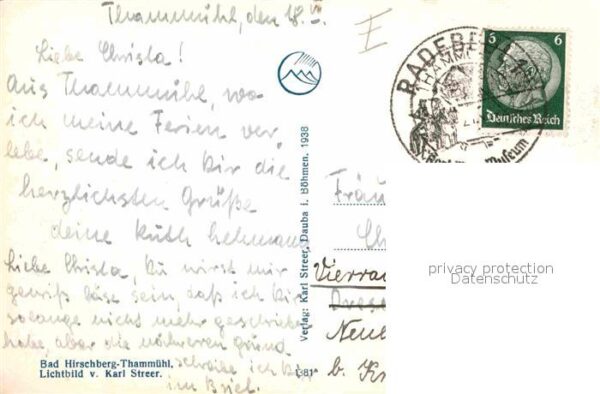 Thammühl, den 18.
Liebe Christa!
Aus Thammühl, wo
ich meine Ferien ver
lebe, sende ich Dir die
herzlichsten Grüße
deine Ruth
Liebe Christa, Du wirst mir
gewiß böse sein, daß ich Dir
solange nicht mehr geschrieben
habe, aber die näheren Gründ
schreibe ich Dir
im Brief.
Bad Hirschberg-Thammühl.
Lichtbild v. Karl Streer.
L 81
Verlag: Karl Streer, Dauba i. Böhmen. 1938
RADEBEUL
Museum
6 6
Deutsches Reich
Fräu
Ch
Vierra
Dres
Neu
b. K
privacy protection
Datenschutz